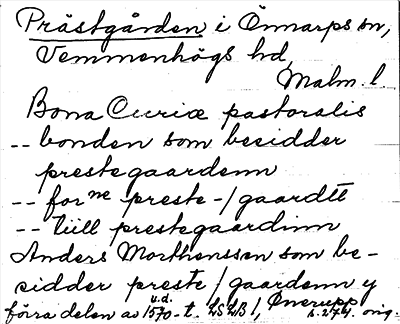 Prästgården i Önnarps sn,
Vemmenhögs hd,
Malm. l.
Bona Curiæ pastoralis
-- bonden som besidder
prestegaardenn
-- forne preste-/gaardtt
-- till prestegaardinn
Anders Morthenssen som be-
sidder preste/gaardenn y
Önerupp
förra delen av 1570-t. u.d. LSLB1, s. 274. orig.